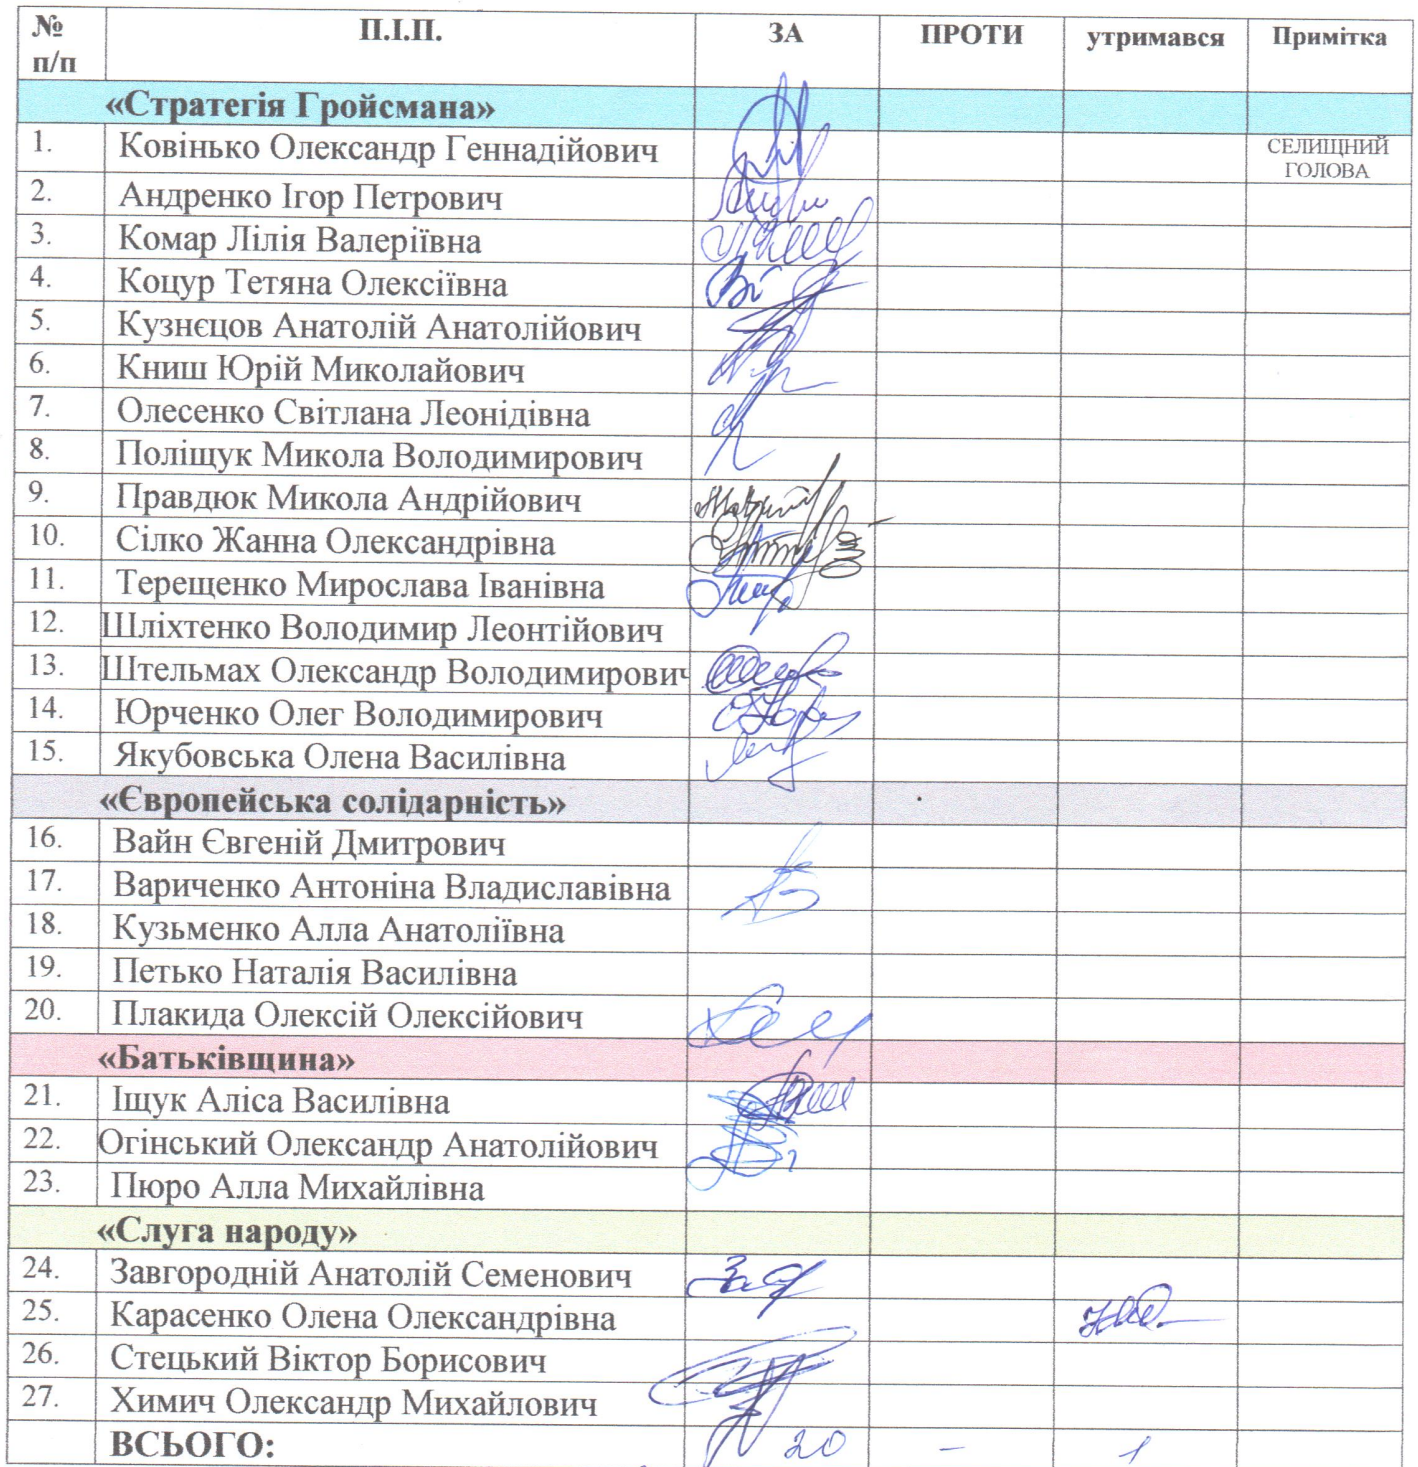 № п/п П.І.П. ЗА ПРОТИ утримався Примітка
«Стратегія Гройсмана»
1. Ковінько Олександр Геннадійович СЕЛИЩНИЙ ГОЛОВА
2. Андренко Ігор Петрович
3. Комар Лілія Валеріївна
4. Коцур Тетяна Олексіївна
5. Кузнєцов Анатолій Анатолійович
6. Книш Юрій Миколайович
7. Олесенко Світлана Леонідівна
8. Поліщук Микола Володимирович
9. Правдюк Микола Андрійович
10. Сілко Жанна Олександрівна
11. Терещенко Мирослава Іванівна
12. Шліхтенко Володимир Леонтійович
13. Штельмах Олександр Володимирович
14. Юрченко Олег Володимирович
15. Якубовська Олена Василівна
«Європейська солідарність»
16. Вайн Євгеній Дмитрович
17. Вариченко Антоніна Владиславівна
18. Кузьменко Алла Анатоліївна
19. Петько Наталія Василівна
20. Плакида Олексій Олексійович
«Батьківщина»
21. Іщук Аліса Василівна
22. Огінський Олександр Анатолійович
23. Пюро Алла Михайлівна
«Слуга народу»
24. Завгородній Анатолій Семенович
25. Карасенко Олена Олександрівна
26. Стецький Віктор Борисович
27. Химич Олександр Михайлович
ВСЬОГО: 20 – 1